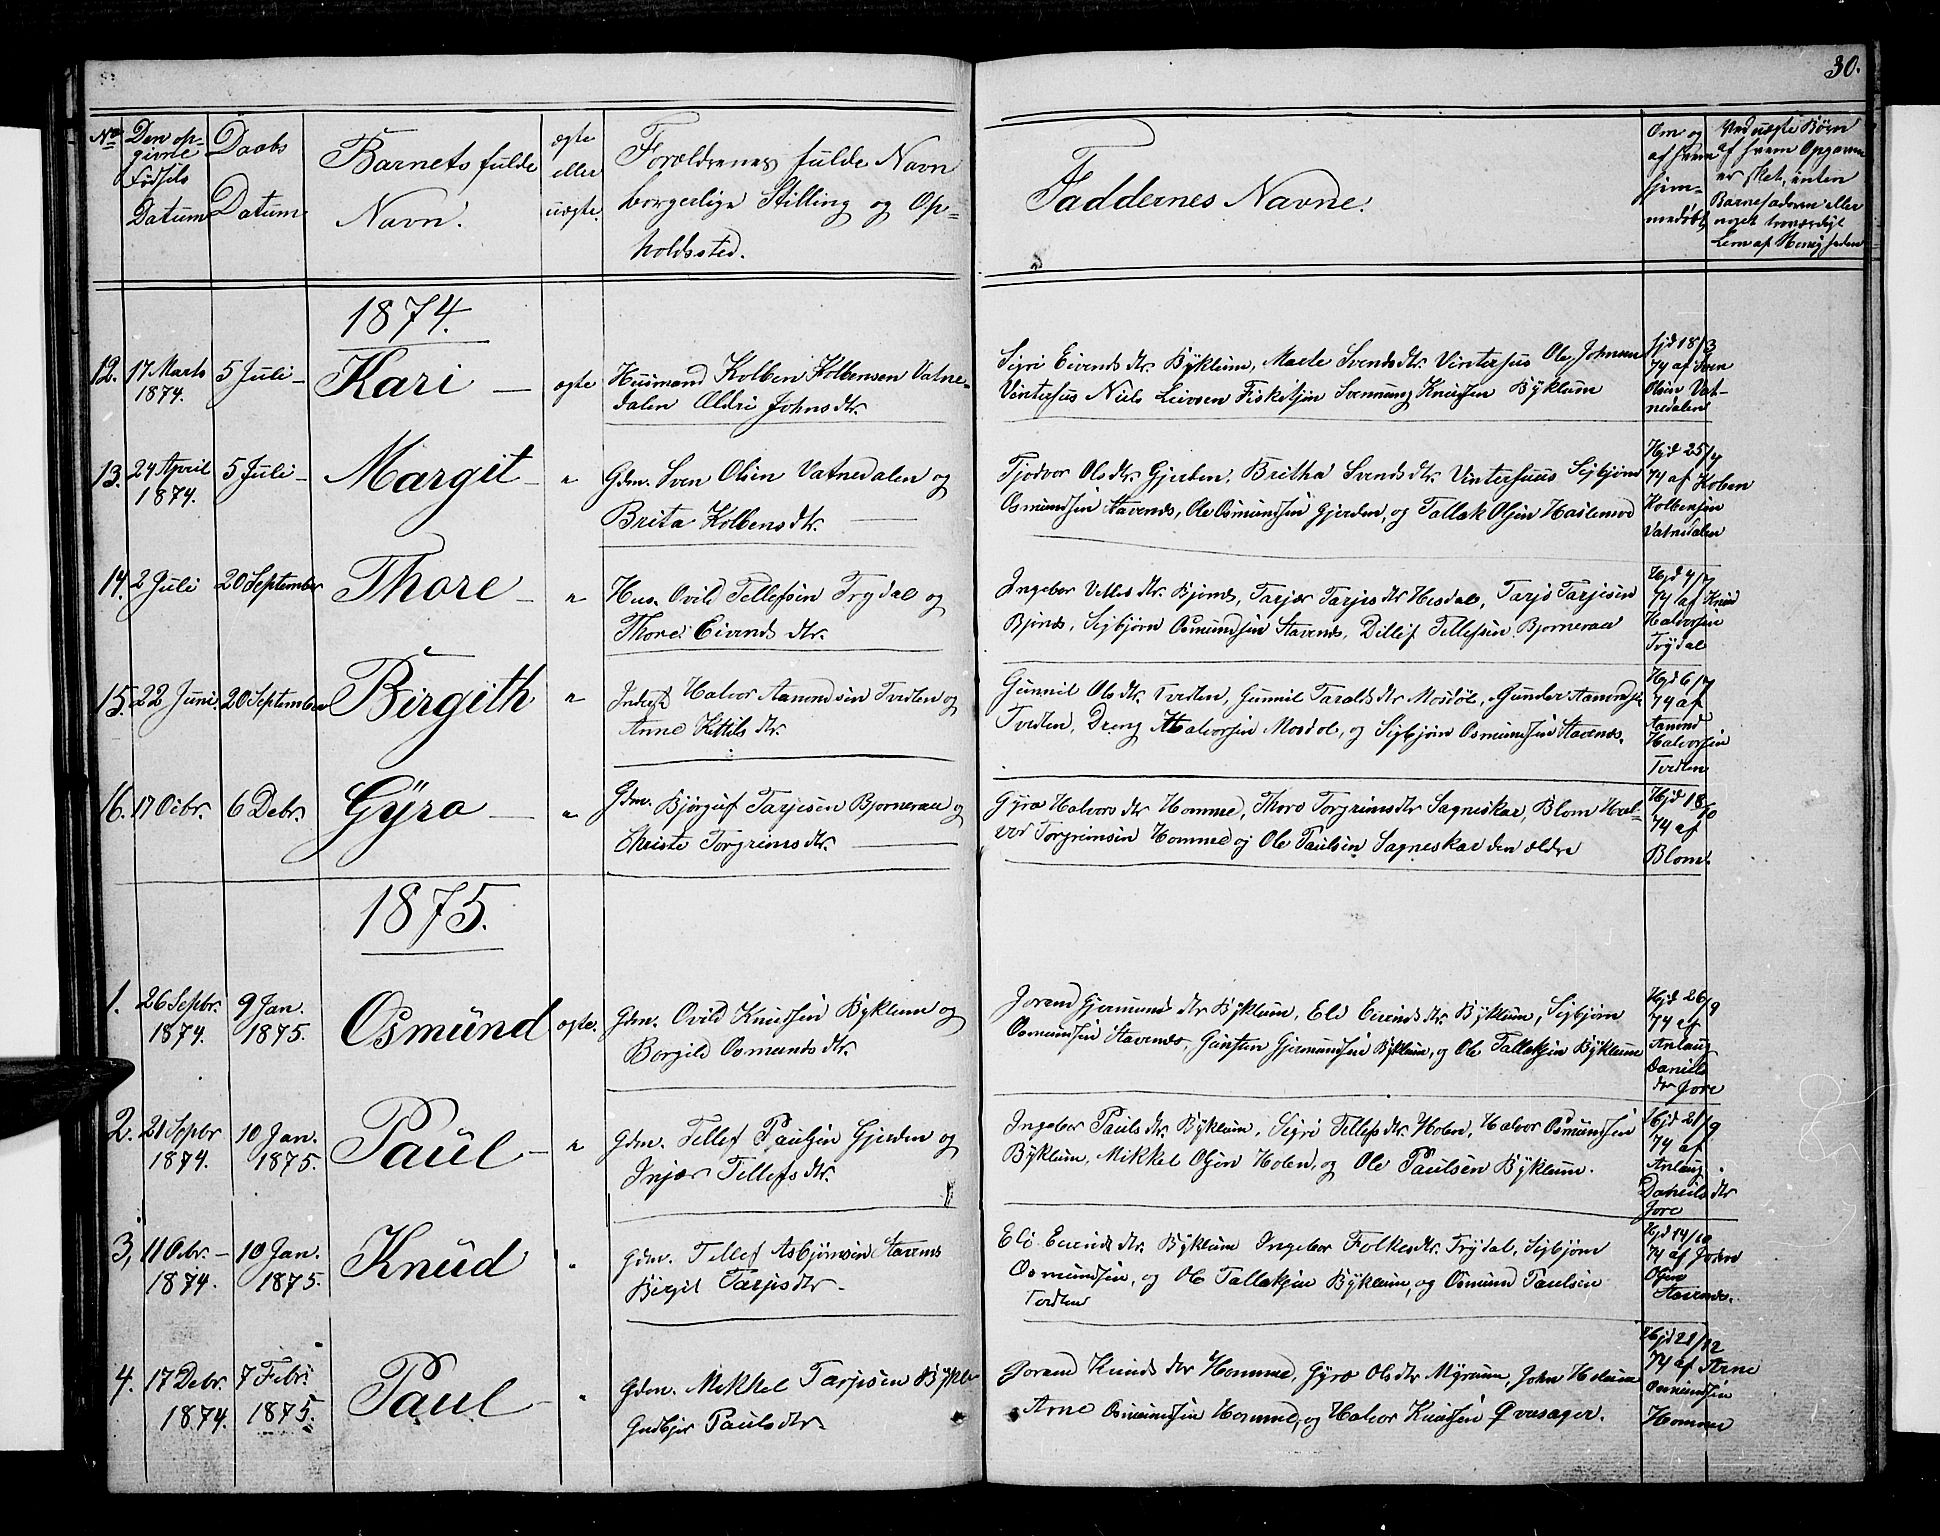 30.
No
Den op-
givne
Fødsels
Datum
Daabs
Datum
Barnets fulde
Navn.
ægte
eller
uægte.
Forældrenes fulde Navn
borgerlige Stilling og Op-
holdssted.
Faddernes Navne.
Om og
af hvem
hjem-
medøbt
Ved uægte Børn
af hvem Opgaven
er sket, enten
Barnefaderen eller
noget troværdigt
Lem af Menigheden
1874.
12. 17 Marts
1874.
5 Juli
Kari
ægte
Husmand Kolben Kolbensen Vatne-
dalen Aldri Johnsdtr.
Sigri Eivendsdtr. Byklum, Svendsdtr. Vintersus Ole Johnsen
Vintersus Niels Leivsen Svennung Knudsen Byklum
hjd 18/3
74 af Sven
Olsen Vat-
nedalen
13. 24 April
1874.
5 Juli
Margit
"
Gdm. Sven Olsen Vatnedalen og
Brita Kolbensdtr.
Tjodvor Olsdtr. Gjerden, Britha Svendsdtr. Vintersuus Sigbjørn
Osmundsen Stavenes, Ole Osmundsen Gjerden, og Tallak Olsen Haslemo
Hjd 25/4
74 af Koben
Kolbensen
Vatnedalen
14. 2 Juli
20 September
Thore
"
Hus. Ovild Tellefsen Trydal og
Thore Eivends dtr.
Ingebor dtr. Bjønes, Tarjer Tarjesdtr Tarje Tarjesen
Bjønes, Sigbjørn Osmundsen Stavenes, Ditlef Tellefsen Bjorneraa
Hjd 4/7
74 af Knud
Halvorsen
Trydal
15. 22 Juni
20 September
Birgith
"
Inderst Halvor Aamundsen Tveten og
Anne Ketilsdtr.
Gunnil Olsdtr. Tveiten, Gunnil Taraldsdtr Mosdøl, Gunder
Tveiten, Dreng Halvorsen Mosdol, og Sigbjørn Osmundsen Stavenes.
Hjd 6/7
74 af
Aamond
Halvorsen
Tveiten
16. 17 Octbr.
6 Debr.
Gyro
"
Gdm. Bjørguf Tarjesen Bjorneraa og
Christe Torgrimsdtr.
Gyro Halvorsdtr Homme, Thore Torgrimsdtr Sagneskar, Blom Hal-
vor Torgrimsen Homme og Ole Paulsen Sagneskar den ældre
Hjd 18/10
74 af
Blom.
1875.
1. 26 Sepbr.
1874.
9 Jan.
1875.
Osmund
ægte.
Gdm. Ovild Knudsen Byklum og
Borgild Osmundsdtr.
Jorand Gjermundsdtr Byklum, Eli Eivendsdtr. Byklum, Sigbjørn
Osmundsen Stavenes, Gunsten Gjermundsen Byklum, og Ole Tallaksen Byklum
Hjd 26/9
74 af
Anlaug
Daniels
dtr Jore
2. 21 Sepbr
1874.
10 Jan.
1875.
Paul
"
Gdm. Tellef Paulsen Gjerden og
Injær Tellefsdtr.
Ingebor Paulsdtr. Byklum, Sigri Tellefsdtr. Holen, Halvor Osmundsen
Byklum, Mikkel Olsen Holen, og Ole Paulsen Byklum.
Hjd 21/9
74 af
Anlaug
Daniels dtr
Jore
3, 11 Octbr.
1874.
10 Jan.
1875.
Knud
"
Gdm. Tellef Asbjørnsen Stavenes
Birgit Tarjesdtr.
Eli Eivendsdtr. Byklum Ingebor Folkesdtr. Trydal, Sigbjørn
Osmundsen, og Ole Tallaksen Byklum, og Osmund Paulsen
Tveiten
Hjd 14/10
74 af John
Olsen
Stavenes.
4. 17 Debr.
1874.
7 Febr.
1875.
Paul
"
Gdm. Mikkel Tarjesen Bykle
Gudbjør Paulsdtr.
Jorand Knudsdtr Homme, Gyro Olsdtr Myrum, John Holum
Arne Osmundsen Homme, og Halvor Knudsen Qvasager.
Hjd 21/12
74 af Arne
Osmundsen
Homme